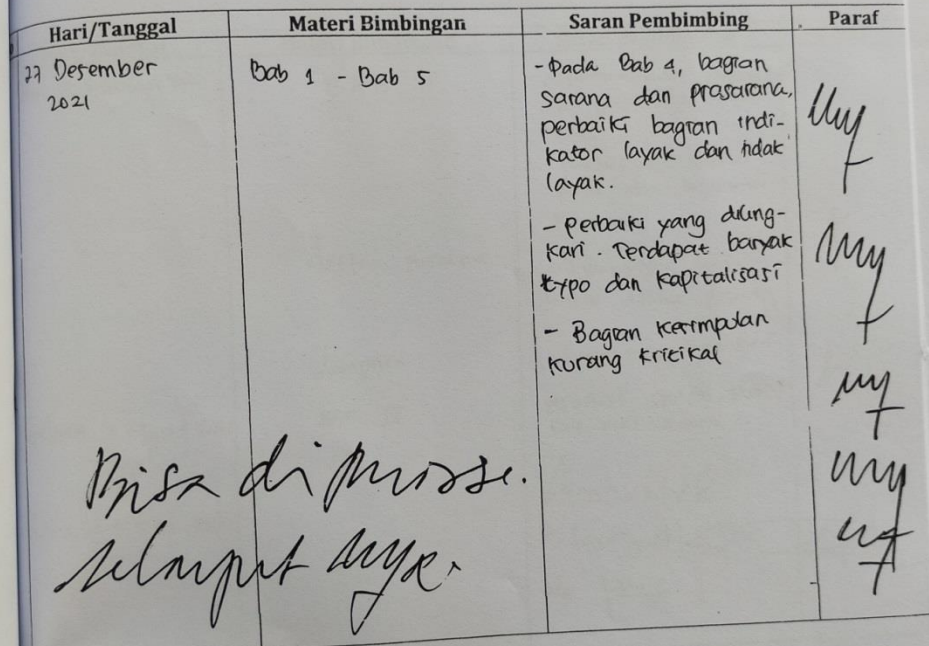 Hari/Tanggal
Materi Bimbingan
Saran Pembimbing
Paraf
27 Desember
2021
Bab 1 - Bab 5
- Pada Bab 4, bagian
sarana dan prasarana,
perbaiki bagian indi-
kator layak dan tidak
layak.
- Perbaiki yang diling-
kari. Terdapat banyak
typo dan kapitalisasi
- Bagian Kesimpulan
kurang kritikal
Bisa di